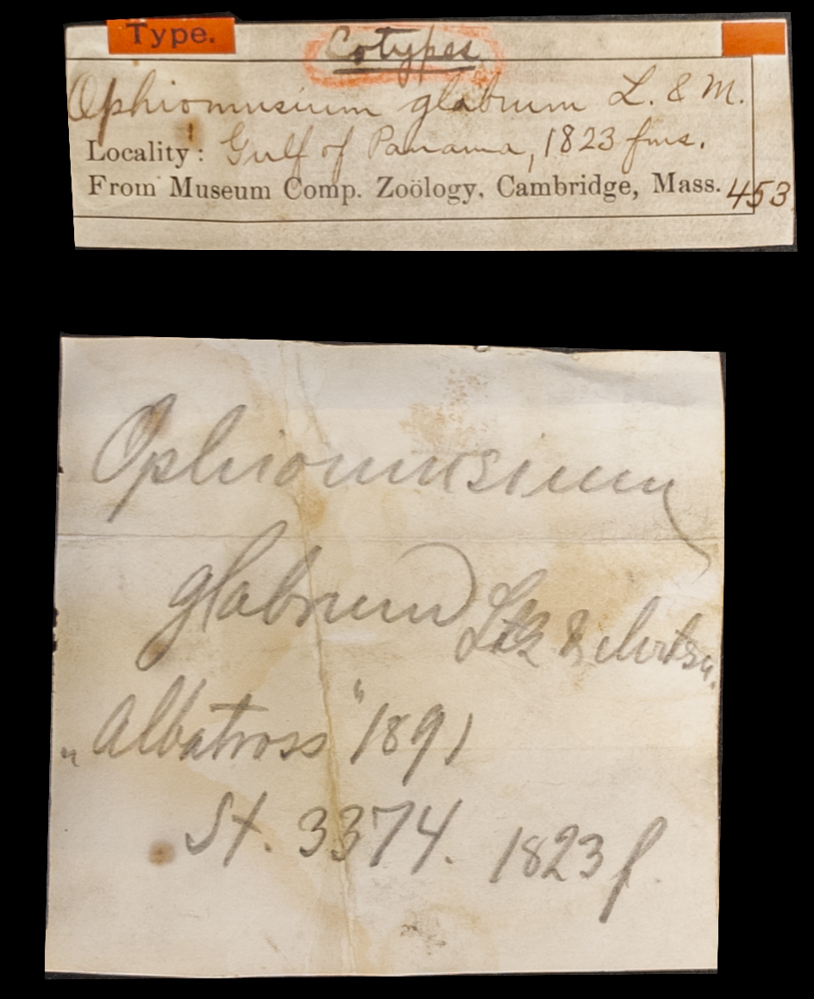 Type.
Cotypes
Ophiomusium glabrum L. & M.
Locality: Gulf of Panama, 1823 fms.
From Museum Comp. Zoölogy, Cambridge, Mass. 453
Ophiomusium
glabrum Ltk & Mrtsn.
„Albatross" 1891
St. 3374. 1823 f.